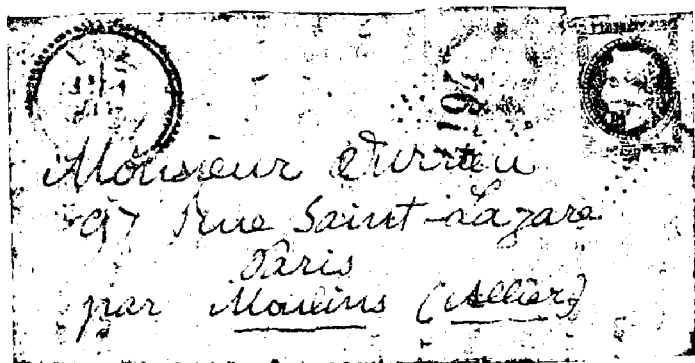 Monsieur
97 Rue Saint-Lazare
Paris
par Moulins (Allier)